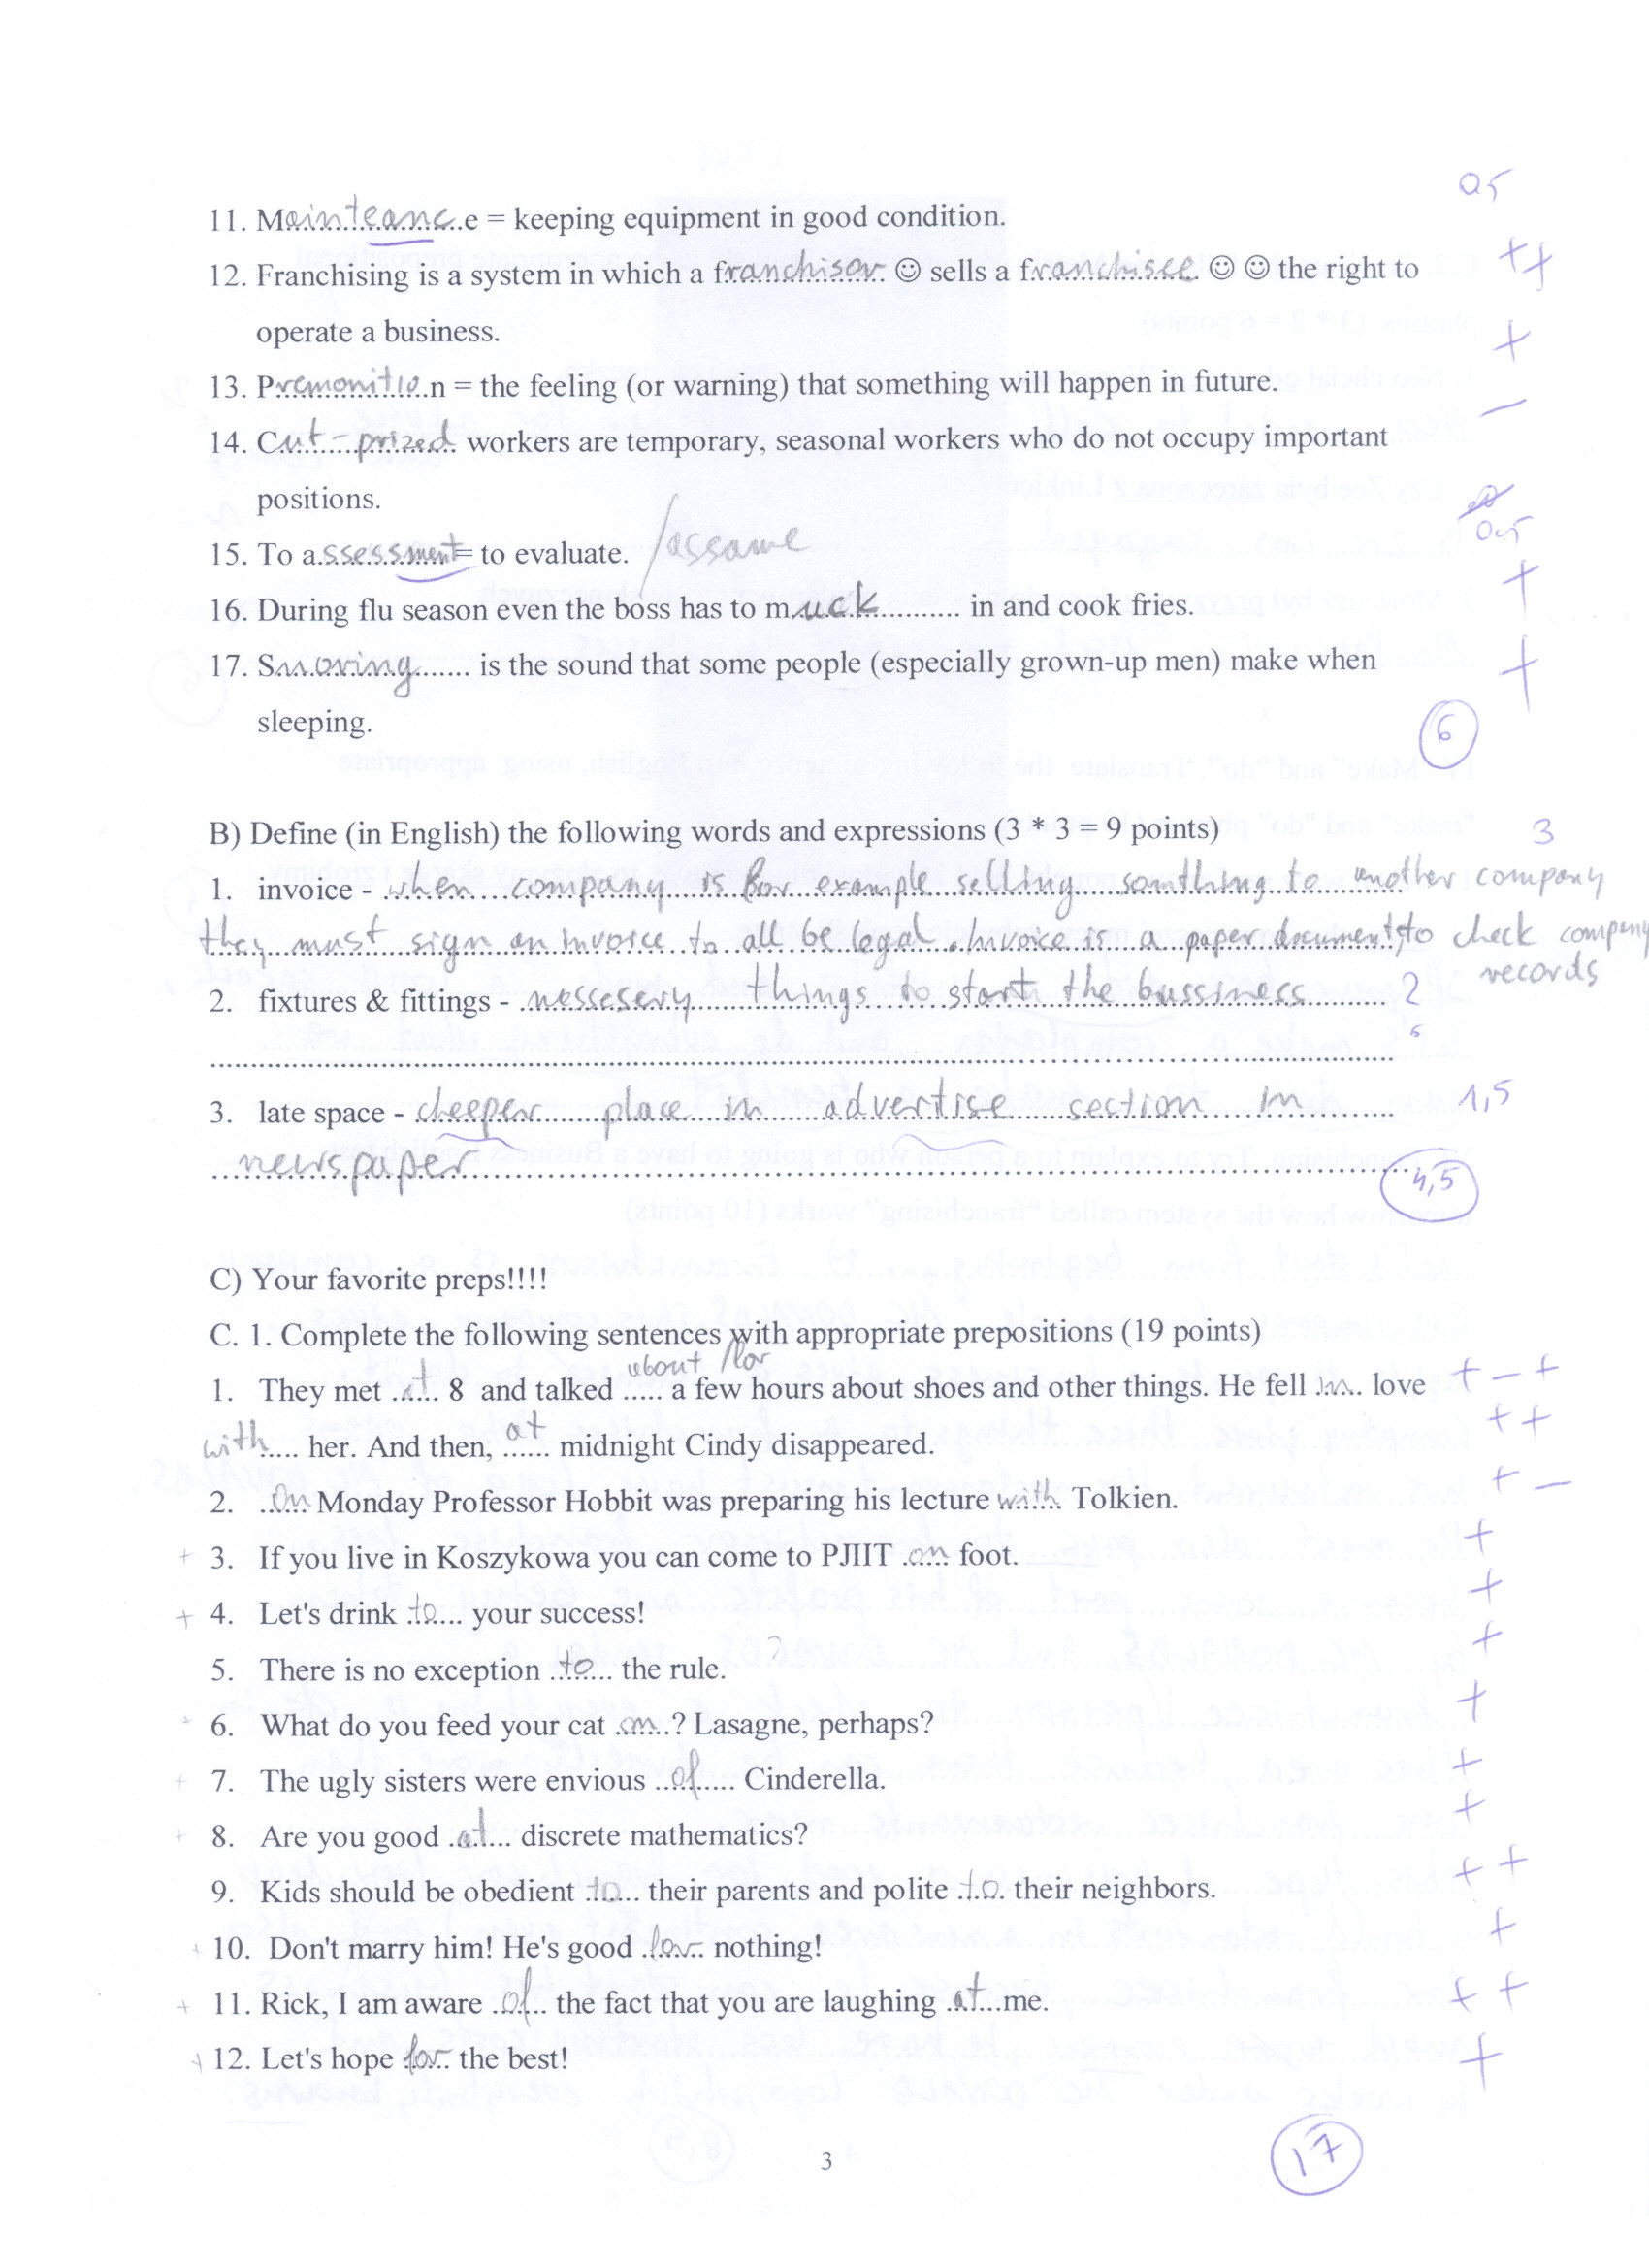 0,5
11. Mainteance = keeping equipment in good condition.
++
12. Franchising is a system in which a franchisor ☺ sells a franchisee ☺ ☺ the right to
operate a business.
+
13. Premonition = the feeling (or warning) that something will happen in future.
—
14. Cut-prized workers are temporary, seasonal workers who do not occupy important
positions.
15. To assessment = to evaluate. /assame
0,5
16. During flu season even the boss has to muck in and cook fries. +
17. Snoring is the sound that some people (especially grown-up men) make when +
sleeping.
6
B) Define (in English) the following words and expressions (3 * 3 = 9 points) 3
1. invoice - when company is for example selling somthing to another company
they must sign an invoice to all be legal. Invoice is a paper document, to check company
records
2. fixtures & fittings - nessesery things to start the bussiness 2
3. late space - cheeper place in advertise section in 1,5
newspaper
4,5
C) Your favorite preps!!!!
C. 1. Complete the following sentences with appropriate prepositions (19 points)
about /for
1. They met at 8 and talked ..... a few hours about shoes and other things. He fell in love + — +
with her. And then, at midnight Cindy disappeared. + +
2. On Monday Professor Hobbit was preparing his lecture with Tolkien. + —
+ 3. If you live in Koszykowa you can come to PJIIT on foot. +
+ 4. Let's drink to your success! +
5. There is no exception to the rule. ? +
6. What do you feed your cat on? Lasagne, perhaps? +
+ 7. The ugly sisters were envious of Cinderella. +
+ 8. Are you good at discrete mathematics? +
9. Kids should be obedient to their parents and polite to their neighbors. + +
+ 10. Don't marry him! He's good for nothing! +
+ 11. Rick, I am aware of the fact that you are laughing at me. + +
+ 12. Let's hope for the best! +
3
17